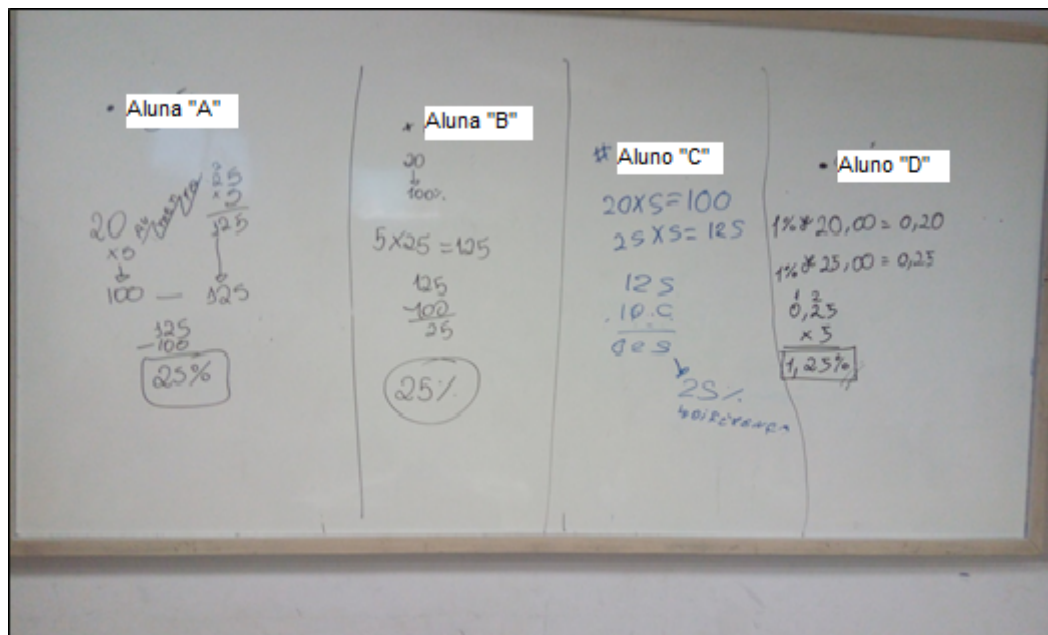 • Aluna "A"
25
x5
125
20
x5
100 — 125
125
-100
25%
* Aluna "B"
20
100%
5x25=125
125
-100
25
25%
# Aluno "C"
20x5=100
25x5=125
125
100
025
25%
• Aluno "D"
1% * 20,00 = 0,20
1% * 25,00 = 0,25
1 2
0,25
x5
1,25%